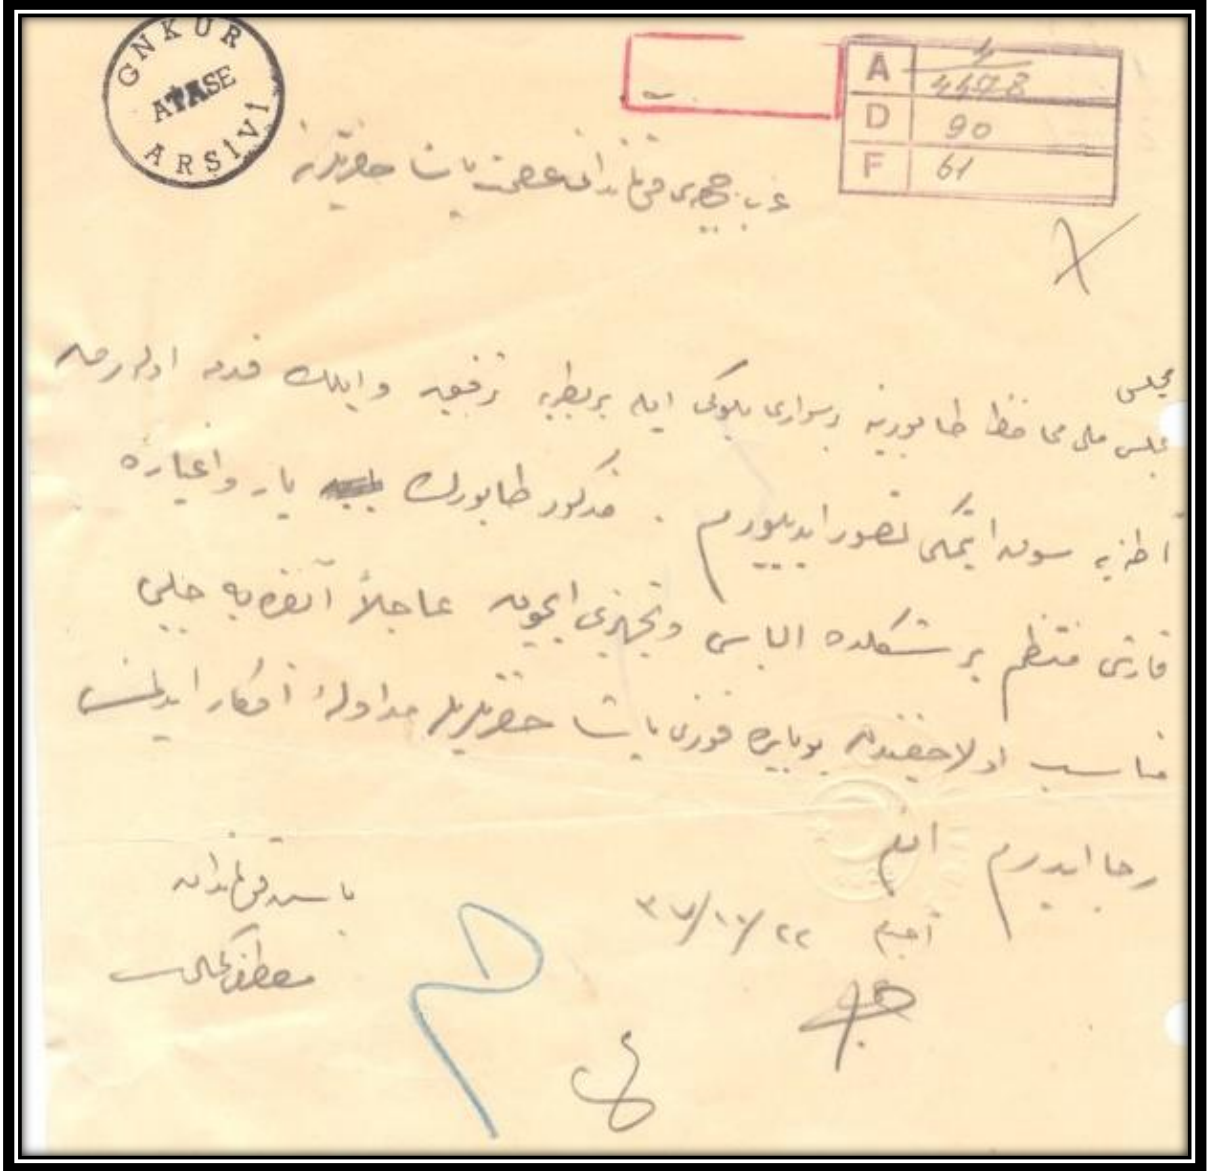 GNKUR
ATASE
ARŞİVİ
A 1/4478
D 90
F 61
غرب جبهه‌سی قوماندانی عصمت پاشا حضرتلرینه
مجلس
مجلس ملی محافظ طابورینه بر سواری بلوکی ایله بر بطریه ترفیق و ایلك قدمه اوله‌رق
آطنه‌یه سوق ایتمكی تصور ایدییورم . مذكور طابورك یار و اغیاره
قارشی منتظم بر شكلده الباس و تجهیزی ایچون عاجلاً آنقره‌یه جلبی
مناسب اولاجغندن بو بابده فوزی پاشا حضرتلریله مداولۀ افكار ایدلمسنی
رجا ایدرم افندم
٣٧/١٠/٢٢
باش قوماندان
مصطفی كمال